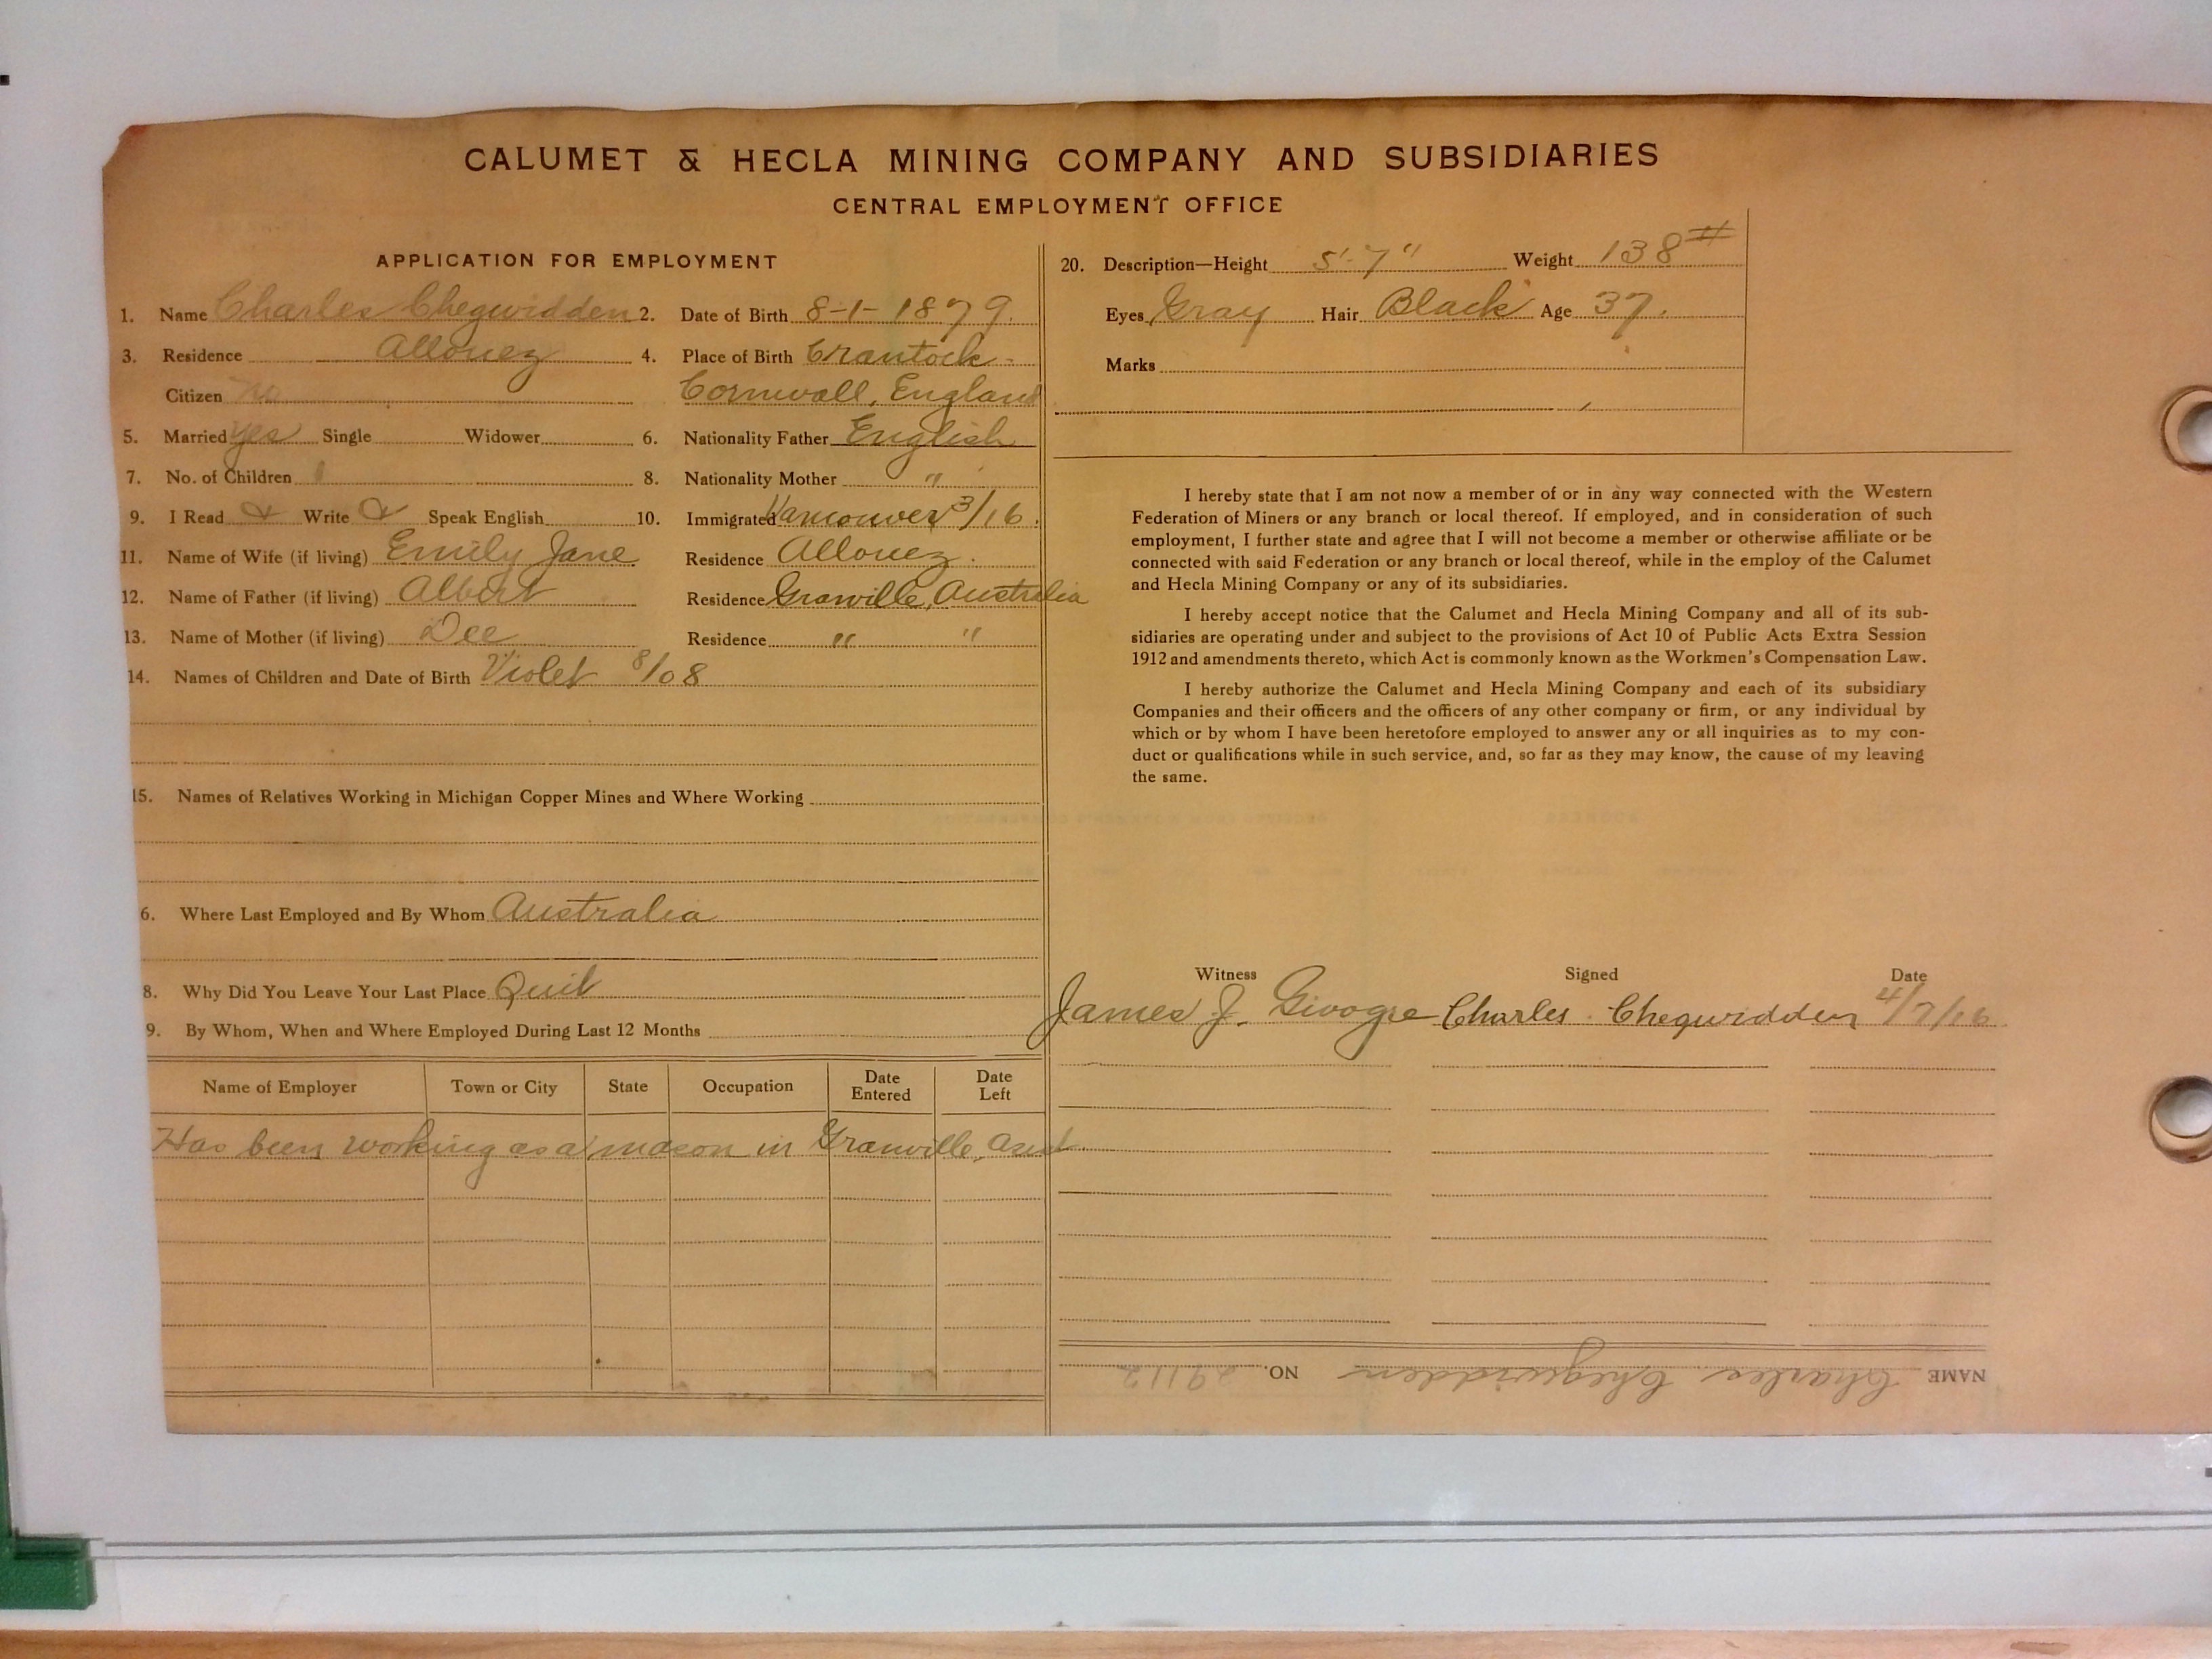 CALUMET & HECLA MINING COMPANY AND SUBSIDIARIES
CENTRAL EMPLOYMENT OFFICE
APPLICATION FOR EMPLOYMENT
1. Name Charles Chegwidden 2. Date of Birth 8-1-1879.
3. Residence Allouez 4. Place of Birth Crantock-
Citizen No Cornwall, England
5. Married yes Single Widower 6. Nationality Father English
7. No. of Children 1 8. Nationality Mother "
9. I Read & Write & Speak English 10. Immigrated Vancouver 3/16.
11. Name of Wife (if living) Emily Jane Residence Allouez.
12. Name of Father (if living) Albert Residence Granville, Australia
13. Name of Mother (if living) Dee Residence " "
14. Names of Children and Date of Birth Violet 8/08
15. Names of Relatives Working in Michigan Copper Mines and Where Working
6. Where Last Employed and By Whom Australia
8. Why Did You Leave Your Last Place Quit
9. By Whom, When and Where Employed During Last 12 Months
Name of Employer Town or City State Occupation Date Entered Date Left
Has been working as a mason in Granville, Aust.
20. Description—Height 5'-7" Weight 138#
Eyes Gray Hair Black Age 37.
Marks
I hereby state that I am not now a member of or in any way connected with the Western
Federation of Miners or any branch or local thereof. If employed, and in consideration of such
employment, I further state and agree that I will not become a member or otherwise affiliate or be
connected with said Federation or any branch or local thereof, while in the employ of the Calumet
and Hecla Mining Company or any of its subsidiaries.
I hereby accept notice that the Calumet and Hecla Mining Company and all of its sub-
sidiaries are operating under and subject to the provisions of Act 10 of Public Acts Extra Session
1912 and amendments thereto, which Act is commonly known as the Workmen's Compensation Law.
I hereby authorize the Calumet and Hecla Mining Company and each of its subsidiary
Companies and their officers and the officers of any other company or firm, or any individual by
which or by whom I have been heretofore employed to answer any or all inquiries as to my con-
duct or qualifications while in such service, and, so far as they may know, the cause of my leaving
the same.
Witness Signed Date
James J. Charles Chegwidden 4/7/16
NAME Charles Chegwidden NO. 29112